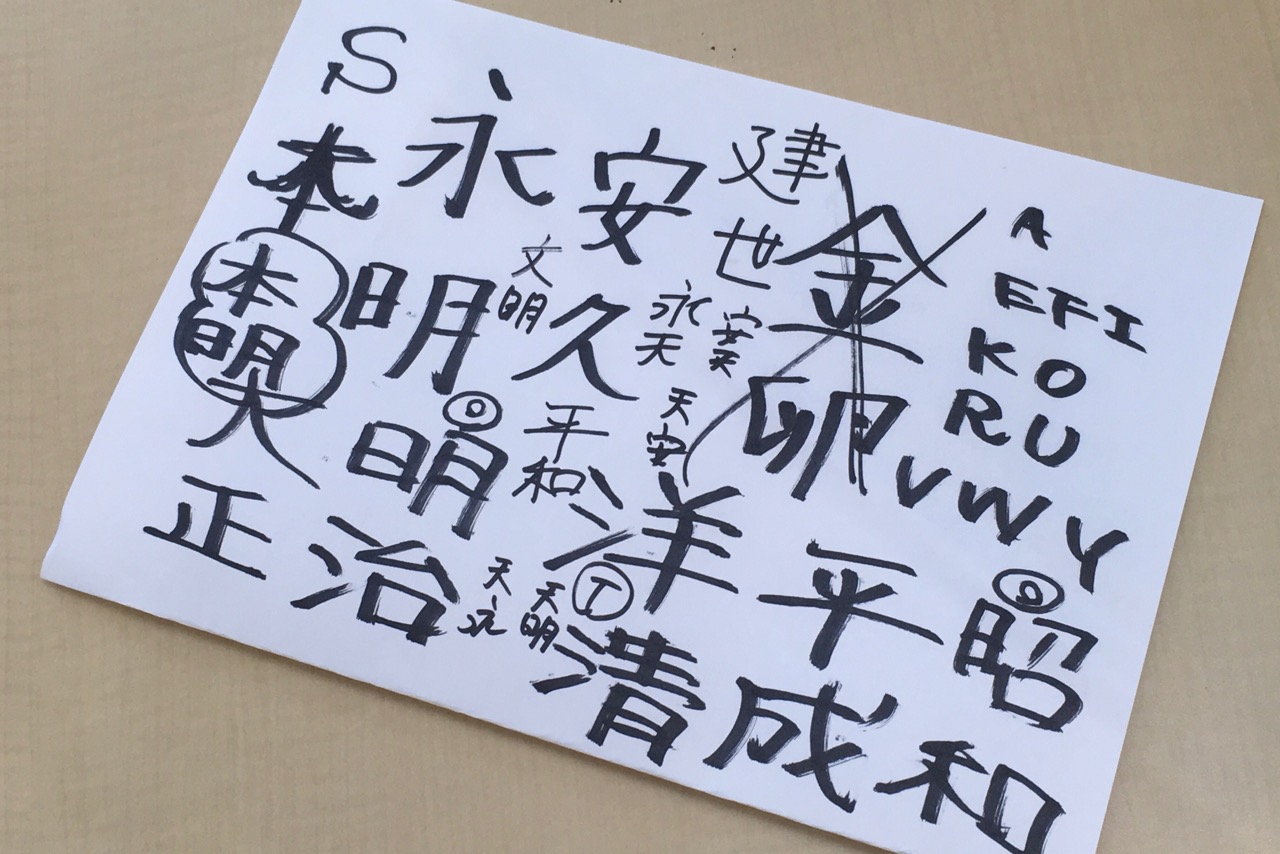 S
本 永 安 建世 金卵
A
EFI
KO
RU
VWY
本明 大
明 文明 久 永天 安天 天安
明 平和 洋
正治 天永 天明 T 清 平成 昭和